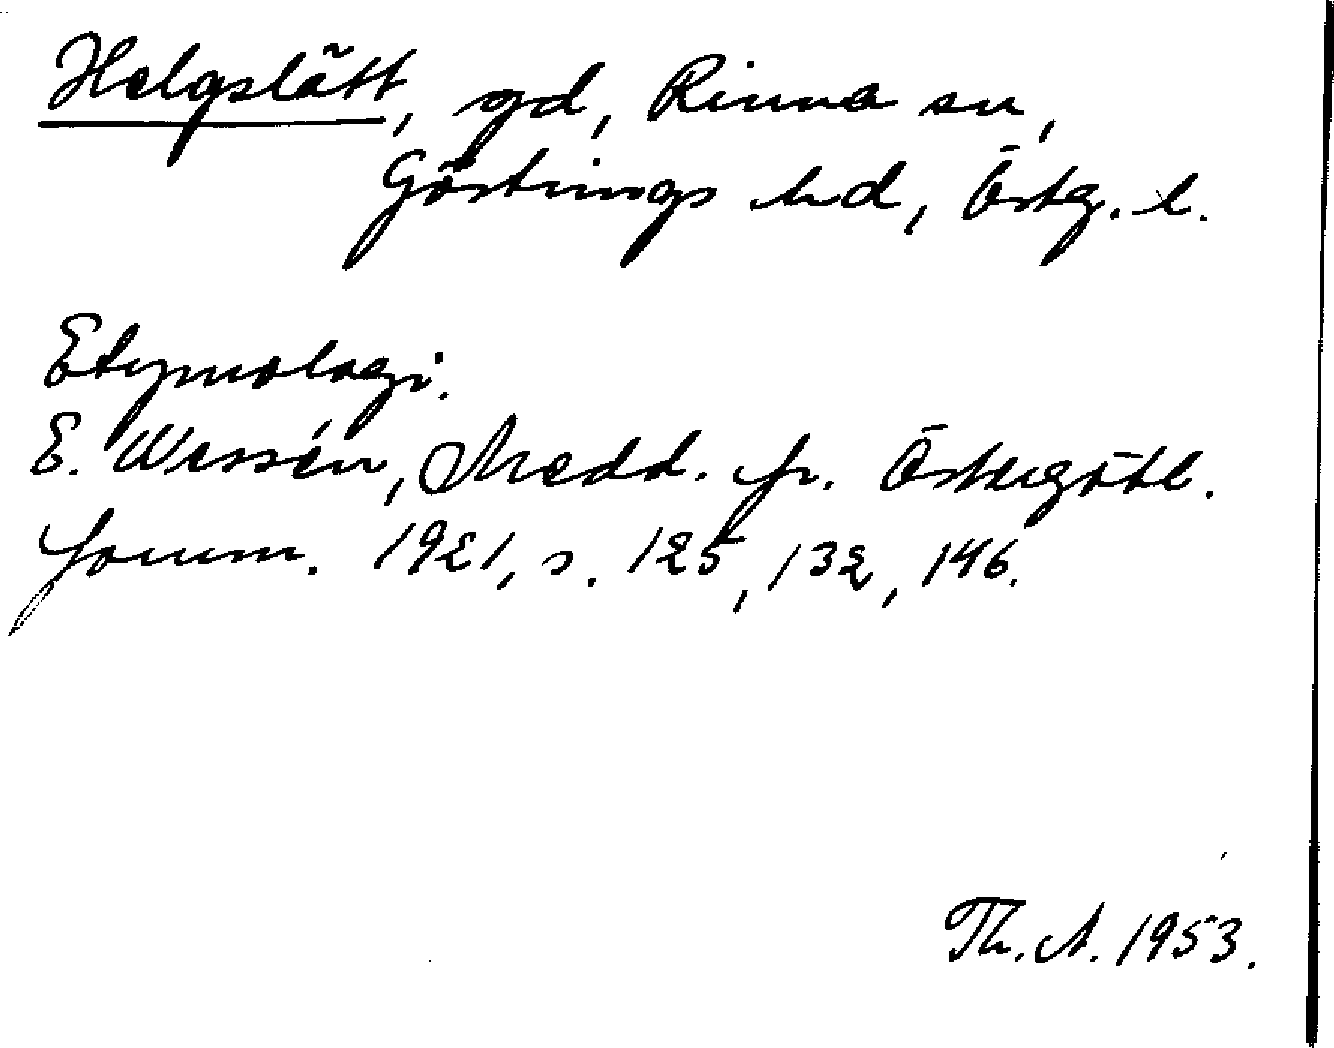 Helgslätt, gd, Rinna sn,
Göstrings hd, Östg. l.
Etymologi.
E. Wessén, Medd. fr. Östergötl.
fornm. 1921, s. 125, 132, 146.
Th. A. 1953.